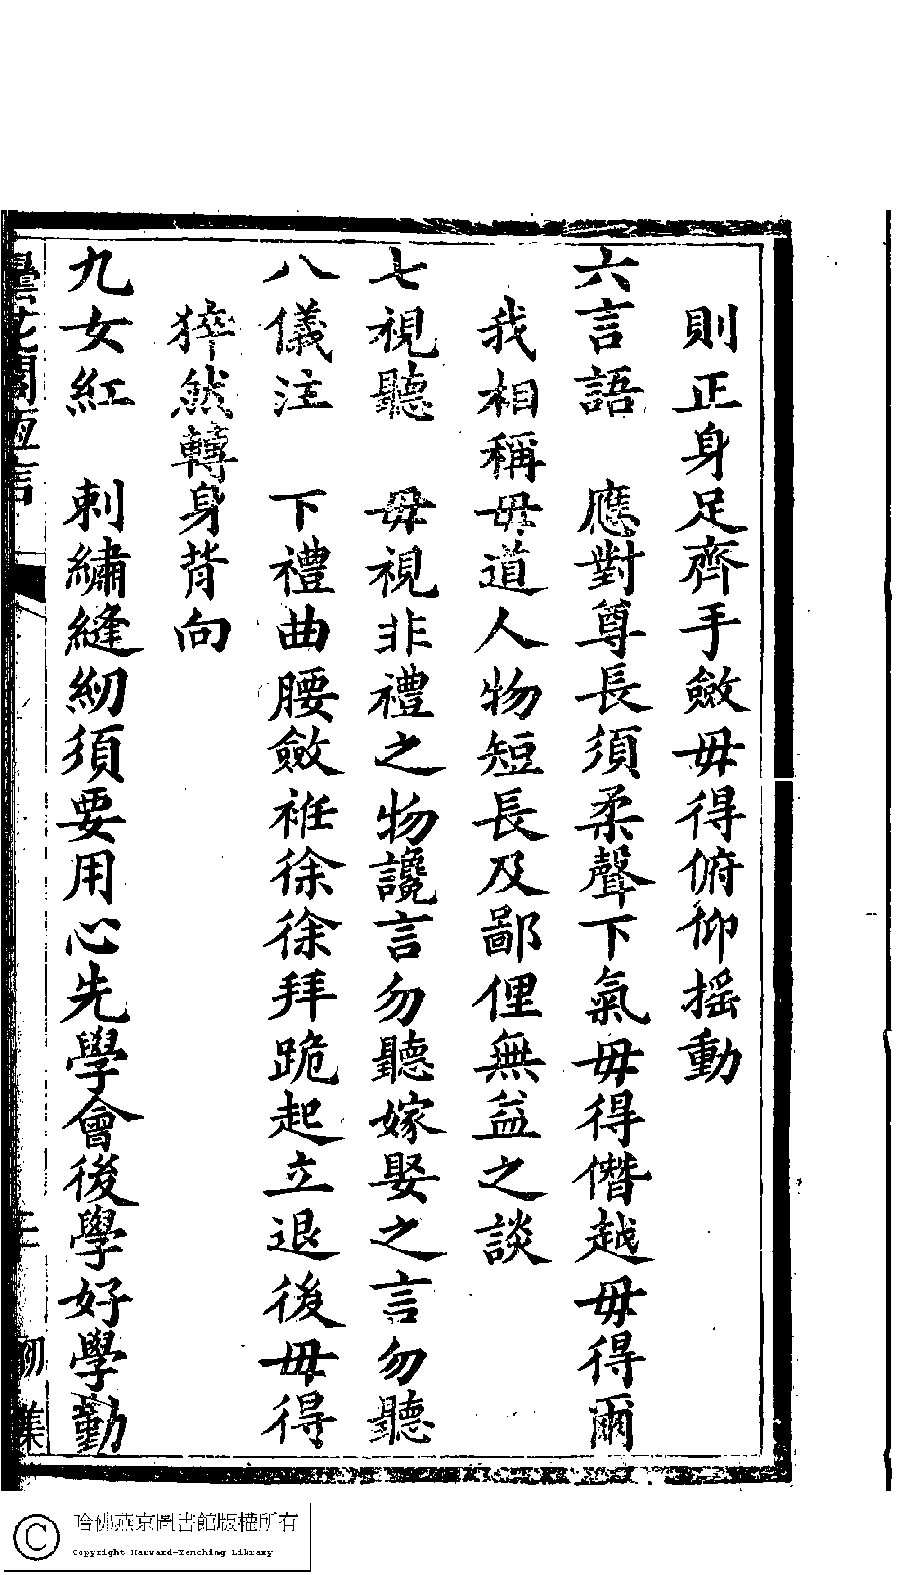 則正身足齊手斂毋得俯仰摇動
六言語　應對尊長須柔聲下氣毋得僭越毋得爾
我相稱毋道人物短長及鄙俚無益之談
七視聽　毋視非禮之物讒言勿聽嫁娶之言勿聽
八儀注　下禮曲腰斂袵徐徐拜跪起立退後毋得
猝然轉身背向
九女紅　刺繡縫紉須要用心先學會後學好學勤
曇花閣恆言
二
初集
哈佛燕京圖書館版權所有
Copyright Harvard-Yenching Library